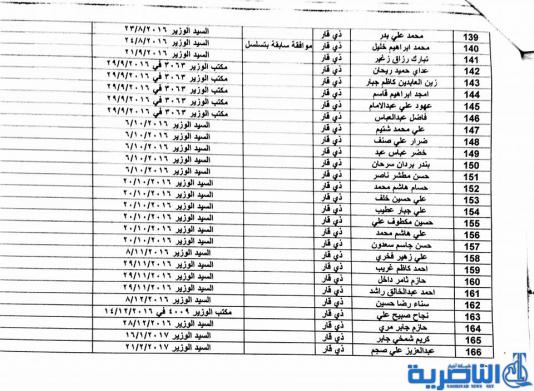 139 محمد علي بدر ذي قار السيد الوزير ٢٣/٨/٢٠١٦
140 محمد ابراهيم خليل ذي قار موافقة سابقة بتسلسل السيد الوزير ٢٤/٨/٢٠١٦
141 تبارك رزاق زغير ذي قار السيد الوزير ٢١/٩/٢٠١٦
142 عداي حميد ريحان ذي قار مكتب الوزير ٣٠٦٣ في ٢٩/٩/٢٠١٦
143 زين العابدين كاظم جبار ذي قار مكتب الوزير ٣٠٦٣ في ٢٩/٩/٢٠١٦
144 امجد ابراهيم قاسم ذي قار مكتب الوزير ٣٠٦٣ في ٢٩/٩/٢٠١٦
145 عهود علي عبدالامام ذي قار مكتب الوزير ٣٠٦٣ في ٢٩/٩/٢٠١٦
146 فاضل عبدالعباس ذي قار مكتب الوزير ٣٠٦٣ في ٢٩/٩/٢٠١٦
147 علي محمد شتيم ذي قار السيد الوزير ٦/١٠/٢٠١٦
148 ضرار علي صنف ذي قار السيد الوزير ٦/١٠/٢٠١٦
149 خضر عباس عبد ذي قار السيد الوزير ٦/١٠/٢٠١٦
150 بندر بردان سرحان ذي قار السيد الوزير ٦/١٠/٢٠١٦
151 حسن مطشر ناصر ذي قار السيد الوزير ٦/١٠/٢٠١٦
152 حسام هاشم محمد ذي قار السيد الوزير ٢٠/١٠/٢٠١٦
153 علي حسين خلف ذي قار السيد الوزير ٢٠/١٠/٢٠١٦
154 علي جبار عطيب ذي قار السيد الوزير ٢٠/١٠/٢٠١٦
155 حسين مكطوف علي ذي قار السيد الوزير ٢٠/١٠/٢٠١٦
156 علي هاشم محمد ذي قار السيد الوزير ٢٠/١٠/٢٠١٦
157 حسن جاسم سعدون ذي قار السيد الوزير ٢٠/١٠/٢٠١٦
158 علي زهير فخري ذي قار السيد الوزير ٨/١١/٢٠١٦
159 احمد كاظم غريب ذي قار السيد الوزير ٢٩/١١/٢٠١٦
160 حازم ثامر داخل ذي قار السيد الوزير ٢٩/١١/٢٠١٦
161 احمد عبدالخالق راشد ذي قار السيد الوزير ٢٩/١١/٢٠١٦
162 سناء رضا حسين ذي قار السيد الوزير ٨/١٢/٢٠١٦
163 نجاح صبيح علي ذي قار مكتب الوزير ٤٠٠٩ في ١٤/١٢/٢٠١٦
164 حازم جابر مري ذي قار السيد الوزير ٢٨/١٢/٢٠١٦
165 كريم شمخي جابر ذي قار السيد الوزير ١٦/١/٢٠١٧
166 عبدالعزيز علي صجم ذي قار السيد الوزير ٢١/٢/٢٠١٧
شبكة أخبار
الناصرية